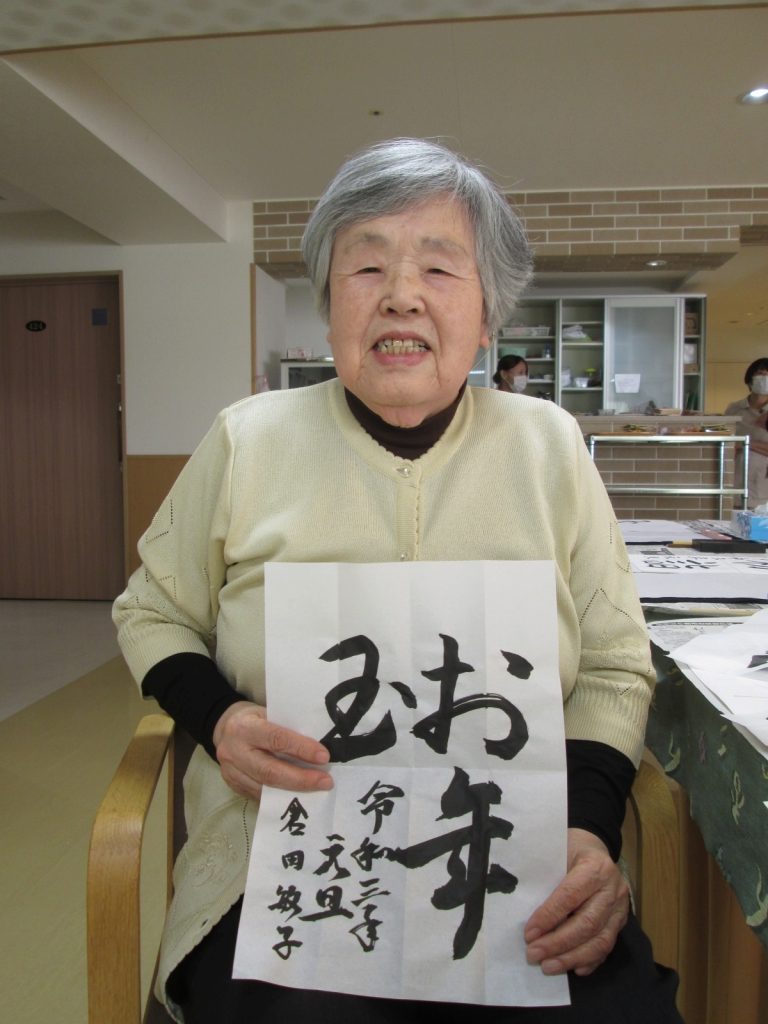 お年
玉
令和三年
元旦
倉田敏子
434